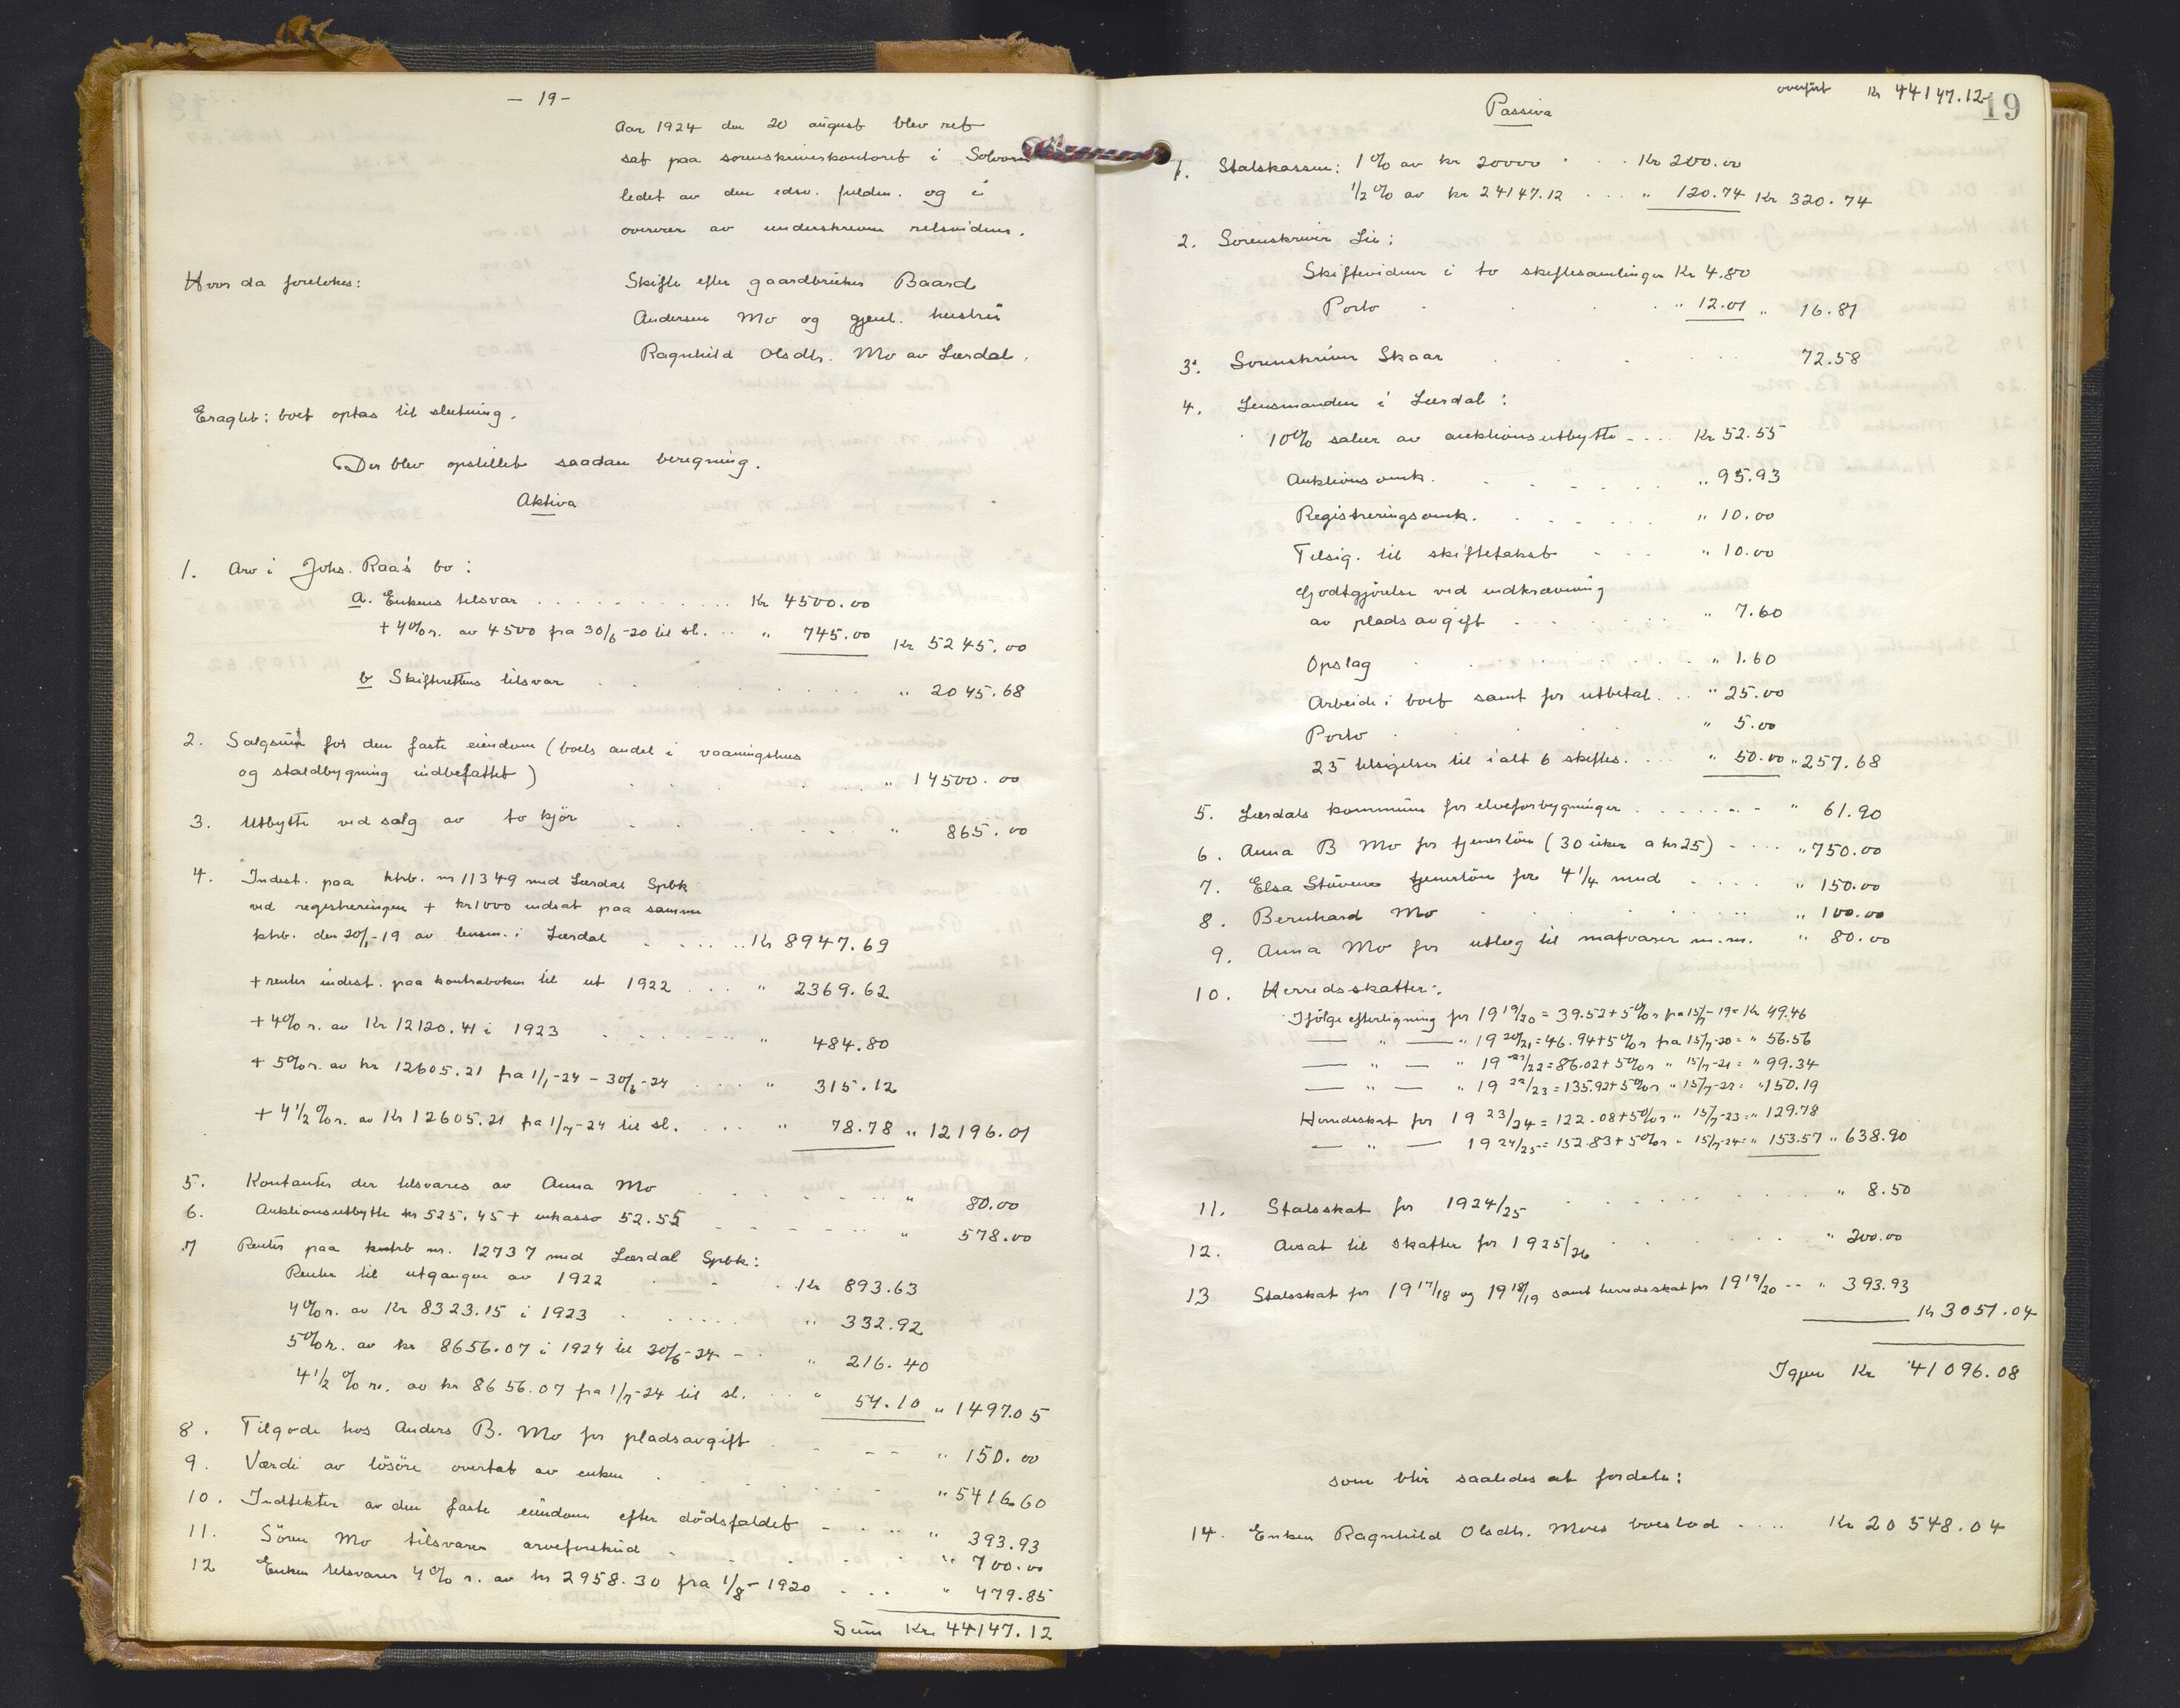 - 19 -
Aar 1924 den 20 august blev ret
sat paa sorenskriverkontoret i Solvorn
ledet av den edsv. fuldm. og i
overvær av underskrevne retsvidner.
Hvor da foretokes:
Skifte efter gaardbruker Baard
Andersen Mo og gjenl. hustru
Ragnhild Olsdtr. Mo av Lærdal.
Eragtet: boet optas til slutning.
Der blev opstillet saadan beregning.
Aktiva
1. Arv i Johs. Raa's bo:
a. Enkens tilsvar . . . . . . . . . . . Kr 4500.00
+ 4% r. av 4500 fra 30/6-20 til sl. . . " 745.00 Kr 5245.00
b Skifterettens tilsvar . . . . . . . . . " 2045.68
2. Salgsum for den faste eiendom (boets andel i vaaningshus
og staldbygning indbefattet) . . . . . " 14500.00
3. Utbytte ved salg av to kjör . . . . . " 865.00
4. Indest. paa ktrb. nr 11349 med Lærdal Spbk
ved registreringen + kr 1000 indsat paa samme
ktrb. den 20/1-19 av lensm. i Lærdal . . . . Kr 8947.69
+ renter indest. paa kontraboken til ut 1922 . . . " 2369.62
+ 4% r. av Kr 12120.41 i 1923 . . . . . . . " 484.80
+ 5% r. av kr 12605.21 fra 1/1-24 - 30/6-24 . . . . " 315.12
+ 4 1/2 % r. av Kr 12605.21 fra 1/7-24 til sl. . . . " 78.78 " 12196.01
5. Kontanter der tilsvares av Anna Mo . . . . . " 80.00
6. Auktionsutbytte kr 525.45 + inkasso 52.55 . . . . . " 578.00
7 Renter paa kontrb nr. 12737 med Lærdal Spbk:
Renter til utgangen av 1922 . . . Kr 893.63
4% r. av Kr 8323.15 i 1923 . . . . . " 332.92
5% r. av kr 8656.07 i 1924 til 30/6-24 - . " 216.40
4 1/2 % r. av kr 8656.07 fra 1/7-24 til sl. . . " 54.10 " 1497.05
8. Tilgode hos Anders B. Mo for pladsavgift . . - - " 150.00
9. Værdi av lösöre overtat av enken . . . . . . " 5416.60
10. Indtekter av den faste eiendom efter dödsfaldet - . . . " 393.93
11. Sören Mo tilsvarer arveforskud . . . . . " 700.00
12 Enken tilsvarer 4% r. av kr 2958.30 fra 1/8-1920 . . . " 479.85
Sum Kr. 44147.12
overfört Kr 44147.12
19
Passiva
1. Statskassen: 1% av kr 20000 . . . Kr 200.00
1/2 % av kr 24147.12 . . . " 120.74 Kr 320.74
2. Sorenskriver Lie:
Skiftevidner i to skiftesamlinger Kr 4.80
Porto . . . . " 12.01 " 16.81
3. Sorenskriver Skaar . . . . . 72.58
4. Lensmanden i Lærdal:
10% salær av auktionsutbytte - . . . Kr 52.55
Auktionsomk. . . . . . " 95.93
Registreringsomk. . . . . . " 10.00
Tilsig. til skiftetakst . . . " 10.00
Godtgjörelse ved indkrævning
av pladsavgift . . . . . " 7.60
Opslag . . . . . . " 1.60
Arbeide i boet samt for utbetal. . . " 25.00
Porto . . . . . " 5.00
25 tilsigelser til ialt 6 skiftes. . . . " 50.00 " 257.68
5. Lærdals kommune for elveforbygninger . . . . . . " 61.90
6. Anna B Mo for tjenerlön (30 uker a kr 25) - . . . " 750.00
7. Elsa Stüvene tjenerlön for 4 1/4 mnd . . . . " 150.00
8. Bernhard Mo . . . . . . . " 100.00
9. Anna Mo for utlæg til matvarer m.m. " 80.00
10. Herredsskatter:
Ifölge efterligning for 19 19/20 = 39.52 + 5% r fra 15/7-19 = Kr 49.46
— " — " 19 20/21 = 46.94 + 5% r fra 15/7-20 = " 56.56
— " — " 19 21/22 = 86.02 + 5% r " 15/7-21 = " 99.34
— " — " 19 22/23 = 135.92 + 5% r " 15/7-22 = " 150.19
Herredsskat for 19 23/24 = 122.08 + 5% r " 15/7-23 = " 129.78
— " — 19 24/25 = 152.83 + 5% r " 15/7-24 = " 153.57 " 638.90
11. Statsskat for 1924/25 . . . . . . . " 8.50
12. Avsat til skatter for 1925/26 . . . . . " 200.00
13 Statsskat for 19 17/18 og 19 18/19 samt herredsskat for 19 19/20 -- " 393.93
Kr 3051.04
Igjen Kr 41096.08
som blir saaledes at fordele:
14. Enken Ragnhild Olsdtr. Moes boeslod . . . . Kr 20548.04